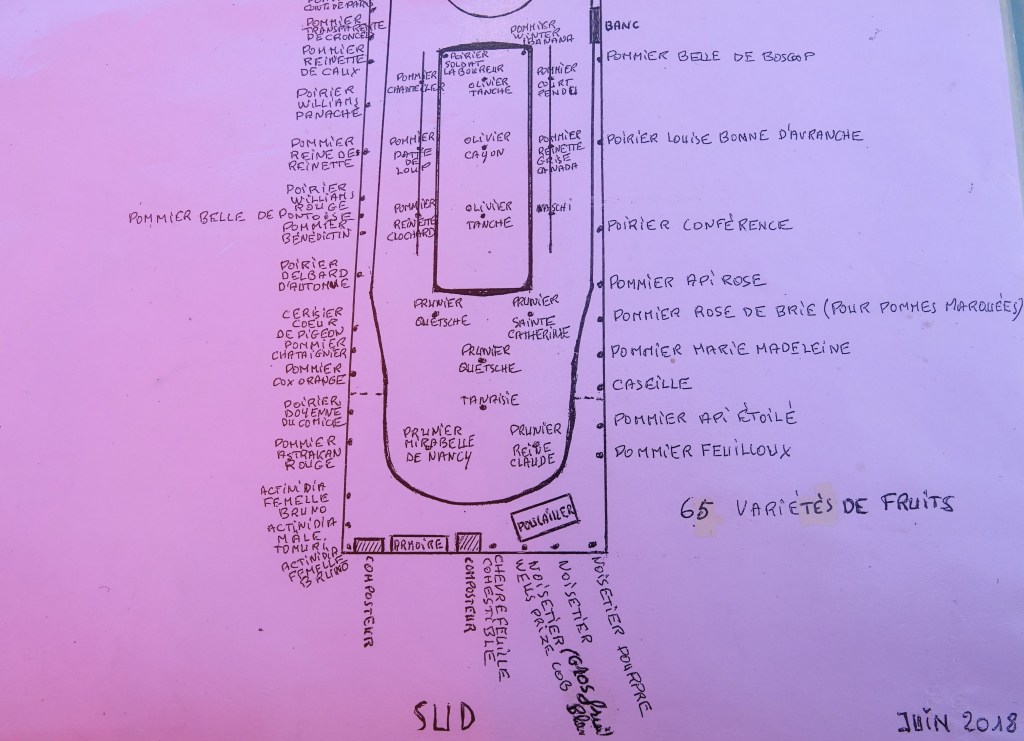 POMMIER
TRANSPARENTE
DE CRONCELS
POMMIER
REINETTE
DE CAUX
POIRIER
WILLIAMS
PANACHÉ
POMMIER
REINE DES
REINETTE
POIRIER
WILLIAMS
ROUGE
POMMIER BELLE DE PONTOISE
POMMIER
BÉNÉDICTIN
POIRIER
DELBARD
D'AUTOMNE
CERISIER
COEUR
DE PIGEON
POMMIER
CHATAIGNIER
POMMIER
COX ORANGE
POIRIER
DOYENNE
DU COMICE
POMMIER
ASTRAKAN
ROUGE
ACTINIDIA
FEMELLE
BRUNO
ACTINIDIA
MÂLE
TOMURI
ACTINIDIA
FEMELLE
BRUNO
POMMIER
WINTER
BANANA
POIRIER
SOLDAT
LABOUREUR
POMMIER
CHANTECLER
OLIVIER
TANCHE
POMMIER
COURT
PENDU
POMMIER
PATTE
DE
LOUP
OLIVIER
CAYON
POMMIER
REINETTE
GRISE
CANADA
POMMIER
REINETTE
CLOCHARD
OLIVIER
TANCHE
NASCHI
PRUNIER
QUETSCHE
PRUNIER
SAINTE
CATHERINE
PRUNIER
QUETSCHE
TANAISIE
PRUNIER
MIRABELLE
DE NANCY
PRUNIER
REINE
CLAUDE
POULAILLER
ARMOIRE
BANC
POMMIER BELLE DE BOSCOP
POIRIER LOUISE BONNE D'AVRANCHE
POIRIER CONFÉRENCE
POMMIER API ROSE
POMMIER ROSE DE BRIE (POUR POMMES MARQUÉES)
POMMIER MARIE MADELEINE
CASEILLE
POMMIER API ÉTOILÉ
POMMIER FEUILLOUX
65 VARIÉTÉS DE FRUITS
COMPOSTEUR
COMPOSTEUR
CHEVREFEUILLE
COMESTIBLE
NOISETIER
WEBS PRIZE COB
NOISETIER
NOISETIER POURPRE
SUD
JUIN 2018